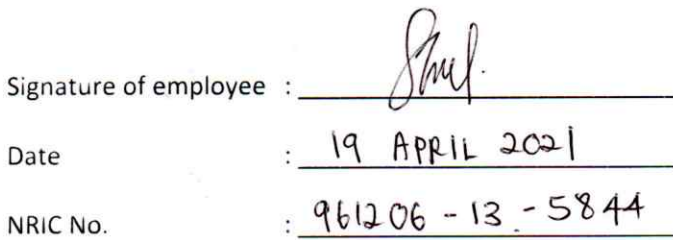 Signature of employee :
Date : 19 APRIL 2021
NRIC No. : 961206 - 13 - 5844